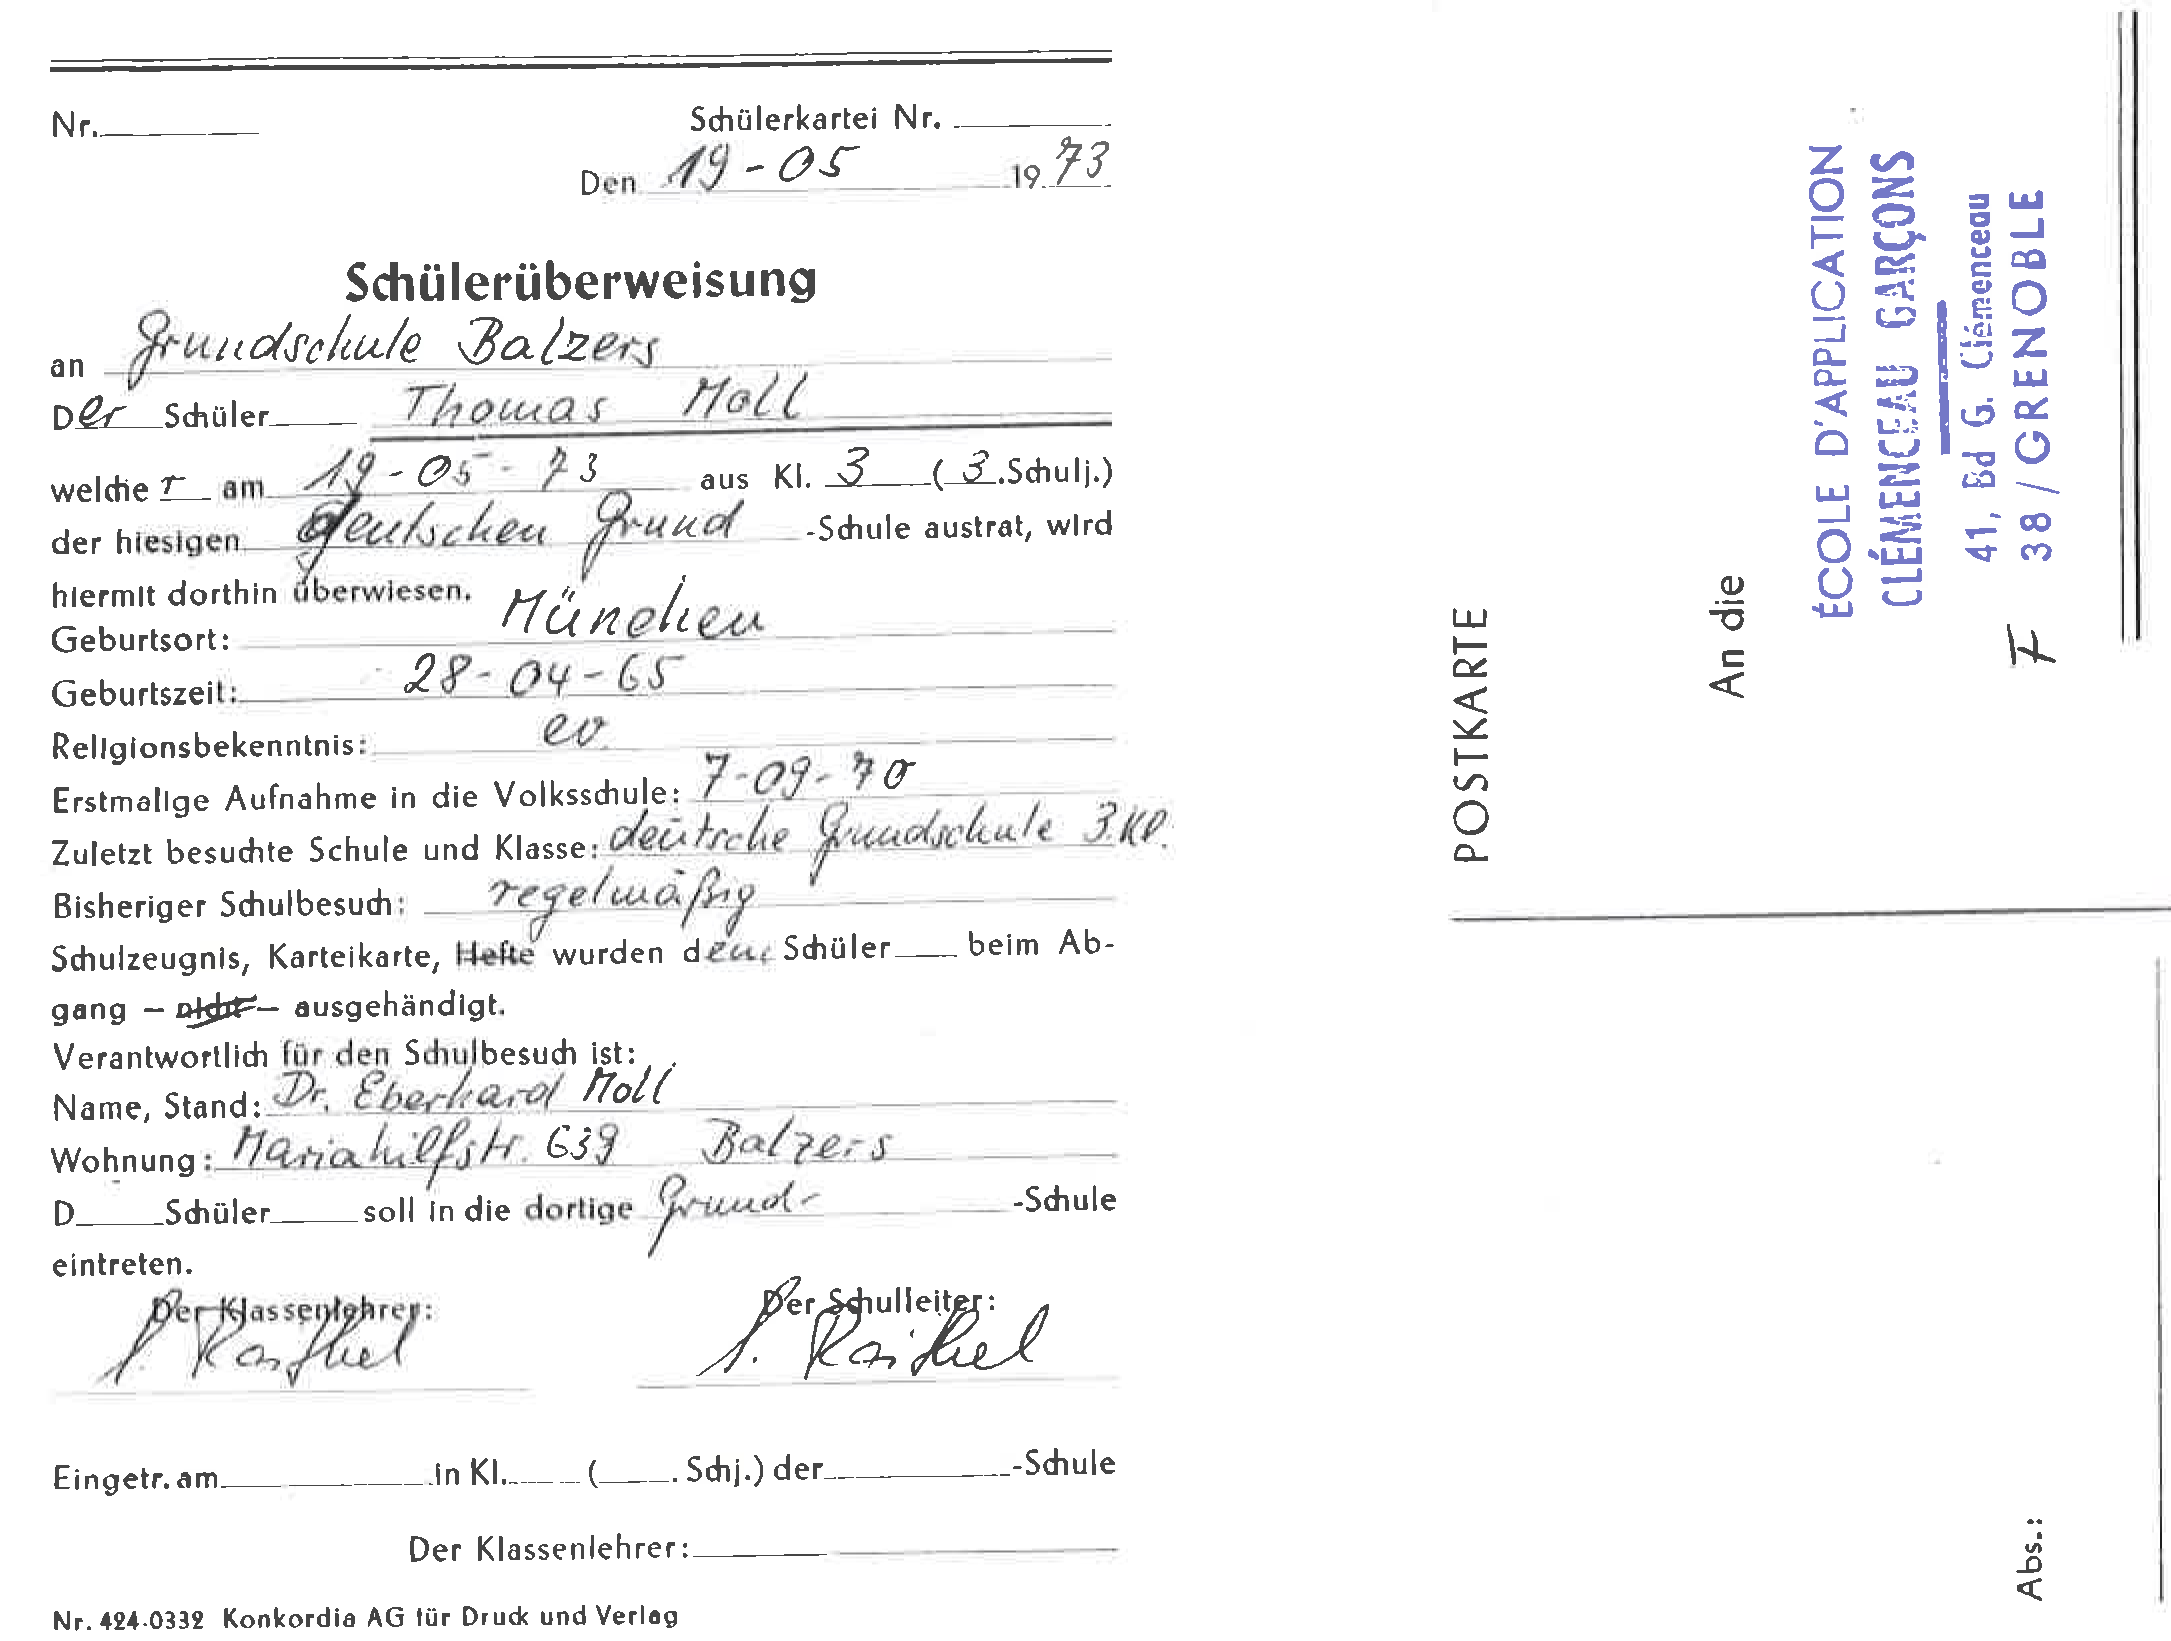 Nr.
Schülerkartei Nr.
Den 19-05 1973
Schülerüberweisung
an Grundschule Balzers
Der Schüler Thomas Moll
welcher am 19-05-73 aus Kl. 3 (3.Schulj.)
der hiesigen deutschen Grund -Schule austrat, wird
hiermit dorthin überwiesen.
Geburtsort: München
Geburtszeit: 28-04-65
Religionsbekenntnis: ev
Erstmalige Aufnahme in die Volksschule: 7-09-70
Zuletzt besuchte Schule und Klasse: deutsche Grundschule 3.Kl.
Bisheriger Schulbesuch: regelmäßig
Schulzeugnis, Karteikarte, Hefte wurden dem Schüler beim Ab-
gang – nicht – ausgehändigt.
Verantwortlich für den Schulbesuch ist:
Name, Stand: Dr. Eberhard Moll
Wohnung: Mariahilfstr. 639 Balzers
D Schüler soll in die dortige Grund- -Schule
eintreten.
Der Klassenlehrer: Der Schulleiter:
Eingetr. am in Kl. ( . Schj.) der -Schule
Der Klassenlehrer:
Nr. 424-0332 Konkordia AG für Druck und Verlag
POSTKARTE
An die
ÉCOLE D'APPLICATION
CLÉMENCEAU GARÇONS
41, Bd G. Clémenceau
F 38 / GRENOBLE
Abs.: